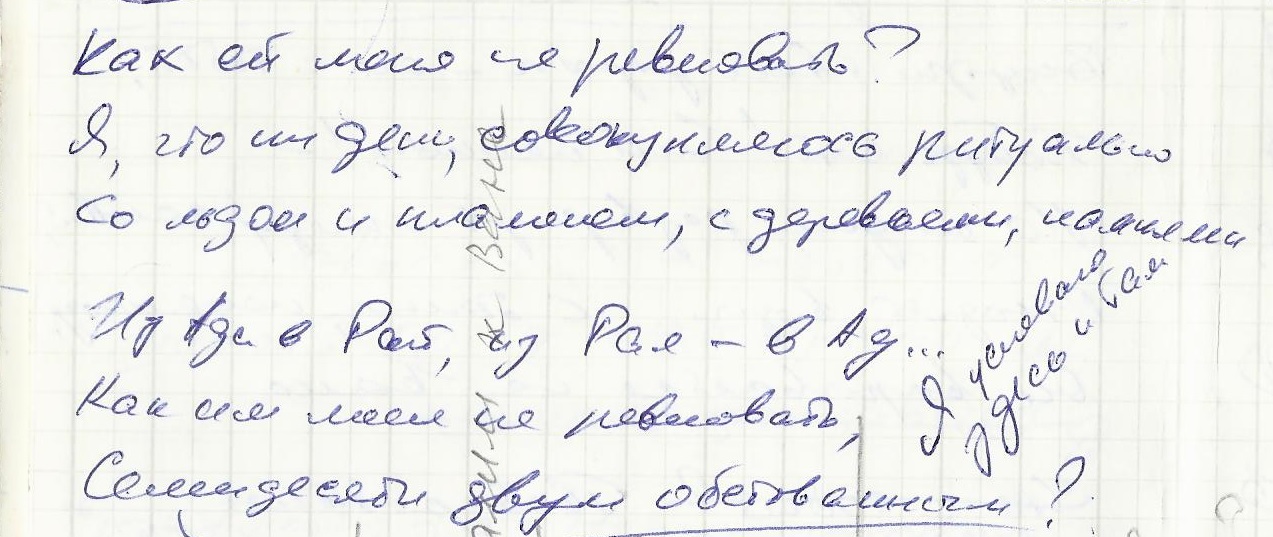 Как ей меня не ревновать?
Я, что ни день, совокупляюсь ритуально
Со льдом и пламенем, с деревьями, камнями
Из Ада в Рай, из Рая – в Ад...
Как им меня не ревновать,
Семидесяти двум обетованным?
Я успеваю
здесь и там